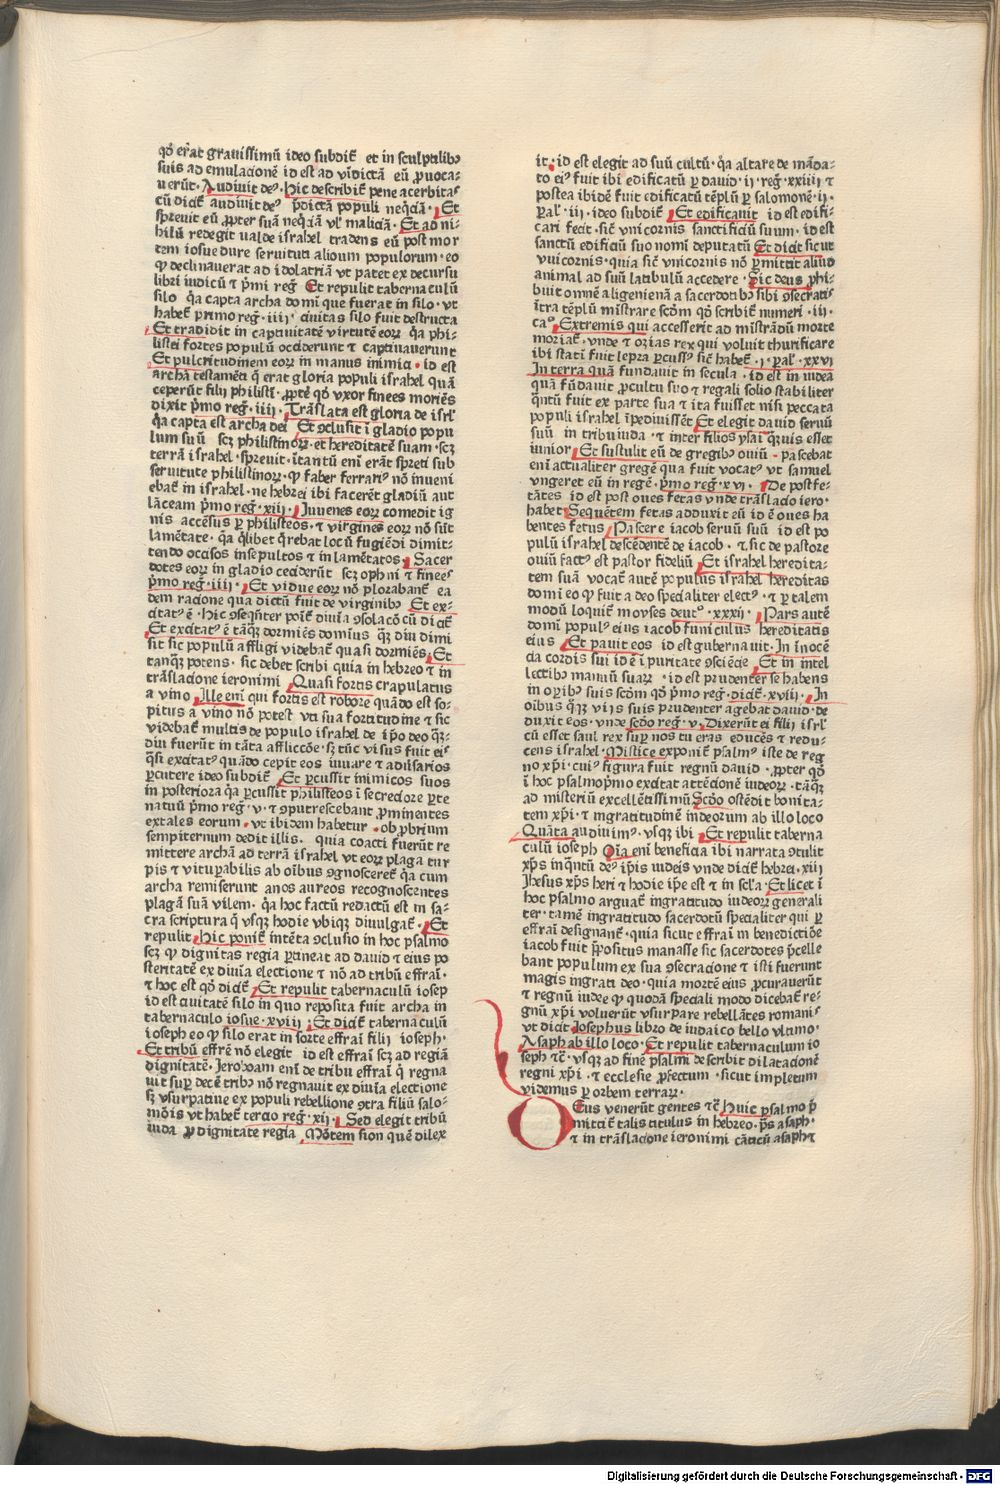 qd̄ erāt grauissimū ideo subdit̄ et in sculptilib9
suis ad emulacionē id est ad vidictā eū ꝓuoca⸗
uerūt · Audiuit de9 · hic describit̄ pene acerbitas
cū dicit̄ audiuit de9 p̄dicta populi neq̄ciā · Et
spreuit eū ꝓpter suā neq̄ciā vl̄ maliciā · Et ad ni⸗
hilū redegit ualde israhel tradens eū post mor
tem iosue dure seruituti alioum populorum · eo
ꝙ declinauerat ad idolatriā ut patet ex decursu
libri iudicū ⁊ p̄mi reḡ Et repulit tabernaculū
silo q̄a capta archa domī que fuerat in silo · vt
habet̄ primo reḡ · iiii · ciuitas silo fuit destructa
Et tradidit in captiuitatē virtutē eoꝝ q̄a phi⸗
listei fortes populū occiderunt ⁊ captiuauerunt
Et pulcritudinem eoꝝ in manus inimici · id est
archā testamēti q̄ erat gloria populi israhel quā
ceperūt filij philisti · ꝓptē qd̄ vxor finees moriēs
dixit p̄mo reḡ · iiii · Trāslata est gloria de isrl̄
q̄a capta est archa dei Et ꝯclusit ī gladio popu
lum suū scꝫ philistinoꝝ · et hereditatē suam · scꝫ
terrā israhel · spreuit · ītantū enī erāt spreti sub
seruitute philistinoꝝ · ꝙ faber ferrari9 nō inueni
ebat̄ in israhel · ne hebrei ibi facerēt gladiū aut
lāceam p̄mo reḡ · xiii · Iuuenes eoꝝ comedit ig
nis accēsus ꝑ philisteos · ⁊ virgines eoꝝ nō sūt
lamētate · q̄a q̄libet q̄rebat locū fugiēdi dimit⸗
tendo occisos insepultos ⁊ in lamētatos · Sacer
dotes eoꝝ in gladio ceciderūt scꝫ ophni ⁊ finees
p̄mo reḡ · iiii · Et vidue eoꝝ nō plorabant̄ ea
dem racione qua dictū fuit de virginib9 Et ex⸗
citat9 ē · Hic ꝯseq̄nter poīt̄ diuīa ꝯsolacō cū dicit̄
Et excitat9 ē tāqꝫ dormiēs domīus qꝫ diu dimi
sit sic populū affligi videbat̄ quasi dormiēs · Et
tanqꝫ potens · sic debet scribi quia in hebreo ⁊ in
trāslacione ieronimi Quasi fortis crapulatus
a vino · Ille enī qui fortis est robore quādo est so⸗
pitus a vino nō potest vti sua fortitudine ⁊ sic
videbat̄ multis de populo israhel de ip̄o deo qꝫ⸗
diu fuerūt in tāta afflicc̄oē · sꝫ tūc visus fuit eis
q̄si excitat9 quādo cepit eos iuuare ⁊ adūsarios
ꝑcutere ideo subdit̄ · Et ꝑcussit inimicos suos
in posteriora q̄a ꝑcussit philisteos ī secreciore ꝑte
natuū p̄mo reḡ · v · ⁊ ꝯputrescebant ꝓminentes
extales eorum · vt ibidem habetur · obꝓbrium
sempiternum dedit illis · quia coacti fuerūt re
mittere archā ad terrā israhel vt eoꝝ plaga tur
pis ⁊ vituꝑabilis ab oībus ꝯgnosceret̄ q̄a cum
archa remiserunt anos aureos recognoscentes
plagā suam vilem · q̄a hoc factū redactū est in sa⸗
cra scriptura q̄ vsqꝫ hodie vbiqꝫ diuulgat̄ · Et
repulit Hic ponit̄ intēta ꝯclusio in hoc psalmo
scꝫ ꝙ dignitas regia ꝑtineat ad dauid ⁊ eius po
steritatē ex diuīa electione ⁊ nō ad tribū effraī ·
⁊ hoc est qd̄ dicit̄ Et repulit tabernaculū iosep
id est ciuitatē silo in quo reposita fuit archa in
tabernaculo iosue · xviii · Et dicit̄ tabernaculū
ioseph eo ꝙ silo erat in sorte effraī filij ioseph ·
Et tribū effrē nō elegit id est effraī scꝫ ad regiā
dignitatē · Ieroboam enī de tribu effraī q̄ regna
uit suꝑ decē trib9 nō regnauit ex diuīa electione
sꝫ vsurpatiue ex populi rebellione ꝯtra filiū salo⸗
mōis vt habet̄ tercio reḡ · xii · Sed elegit tribū
iuda ꝓ dignitate regia Mōtem sion quē dilex
it · id est elegit ad suū cultū · q̄a altare de māda⸗
to ei9 fuit ibi edificatū ꝑ dauid · ii · reḡ · xxiiii ⁊
postea ibidē fuit edificatū tēplū ꝑ salomonē · ii ·
ꝑal̄ · iii · ideo subdit̄ Et edificauit id est edifi⸗
cari fecit · sic̄ vnicornis sanctificiū suum · id est
sanctū edificiū suo nomī deputatū Et dicit sicut
vnicornis · quia sic̄ vnicornis nō ꝑmittit aliud
animal ad suū latibulū accedere · Sic deus ꝓhi⸗
buit omnē aligenienā a sacerdotib9 sibi ꝯsecratis
ītra tēplū mīstrare scd̄m qd̄ scribit̄ numeri · iii ·
ca° · Extremis qui accesserit ad mīstrādū morte
moriat̄ · vnde ⁊ ozias rex qui voluit thurificare
ibi statī fuit lepra ꝑcuss9 sic̄ habet̄ · ii · ꝑal̄ · xxvi
In terra quā fundauit in secula · id est in iudea
quā fūdauit ꝓcultu suo ⁊ regali solio stabiliter
q̄ntū fuit ex parte sua ⁊ ita fuisset nisi peccata
populi israhel īpediuissēt Et elegit dauid seruū
suū in tribu iuda · ⁊ inter filios ysai q̄uis esset
iunior Et sustulit eū de gregib9 ouiū · pascebat
enī actualiter gregē qua fuit vocat9 vt samuel
vngeret eū in regē · p̄mo reḡ · xvi · De postfe⸗
tātes id est post oues fetas vnde trāslacio iero ·
habet Sequētem fetas adduxit eū id ē oues ha
bentes fetus Pascere iacob seruū suū id est po
pulū israhel descēdentē de iacob · ⁊ sic de pastore
ouiū fact9 est pastor fideliū Et israhel heredita⸗
tem suā vocat̄ autē populus israhel hereditas
domī eo ꝙ fuit a deo specialiter elect9 · ⁊ ꝑ talem
modū loquit̄ moyses deut9 · xxxii · Pars autē
domī popul9 eius iacob funiculus hereditatis
eius Et pauit eos id est gubernauit · In īnocē
cia cordis sui id ē ī puritate ꝯsciēcie Et in intel
lectib9 manuū suaꝝ · id est prudenter se habens
in oꝑib9 suis scd̄m qd̄ p̄mo reḡ · dicit̄ · xviii · In
oībus qꝫqꝫ viis suis prudenter agebat dauid · de
duxit eos · vnde scd̄o reḡ · v · Dixerūt ei filij isrl̄
cū esset saul rex suꝑ nos tu eras educēs ⁊ redu⸗
cens israhel · Mistice exponit̄ psalm9 iste de reg
no xp̄i · cui9 figura fuit regnū dauid · ꝓpter qd̄
ī hoc psalmo p̄mo excitat attēcionē iudeoꝝ · tāqꝫ
ad misteriū excellētissimū Scd̄o ostēdit bonita⸗
tem xp̄i · ⁊ ingratitudinē iudeorum ab illo loco
Quāta audiuim9 · vsqꝫ ibi Et repulit taberna
culū ioseph Oīa enī beneficia ibi narrata ꝯtulit
xp̄s inq̄ntū de9 ip̄is iudeis vnde dicit̄ hebrei · xiii
Jhesus xp̄s heri ⁊ hodie ip̄e est ⁊ in sc̄la · Et licet ī
hoc psalmo arguat̄ ingratitudo iudeoꝝ generali
ter · tamē ingratitudo sacerdotū specialiter qui ꝑ
effraī designant̄ · quia sicut effraī in benedictiōe
iacob fuit p̄positus manasse sic sacerdotes p̄celle
bant populum ex sua ꝯsecracione ⁊ isti fuerunt
magis ingrati deo · quia mortē eius ꝓcurauerūt
⁊ regnū iudee ꝙ quodā speciali modo dicebat̄ re⸗
gnū xp̄i voluerūt vsurpare rebellātes romanis
vt dicit Iosephus libro de iudaico bello vltimo ·
Asaph ab illo loco · Et repulit tabernaculum io
seph ⁊c̄ · vsqꝫ ad finē psalmi describit dilatacionē
regni xp̄i · ⁊ ecclesie ꝓfectum · sicut impletum
videmus ꝑ orbem terraꝝ ·
Deus venerūt gentes ⁊c̄ Huic psalmo p̄
mittit̄ talis titulus in hebreo · p̄s asaph ·
⁊ in trāslacione ieronimi cāticū asaph ⁊
Digitalisierung gefördert durch die Deutsche Forschungsgemeinschaft - DFG